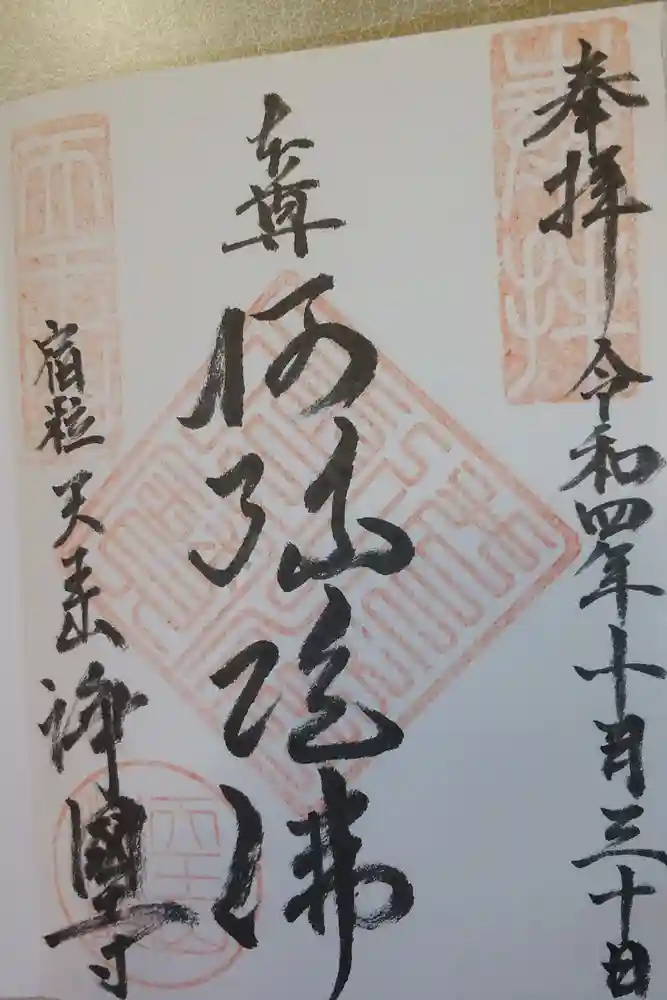 奉拝 令和四年十月三十日
本尊
阿弥陀佛
宿粒 天王山 浄國寺